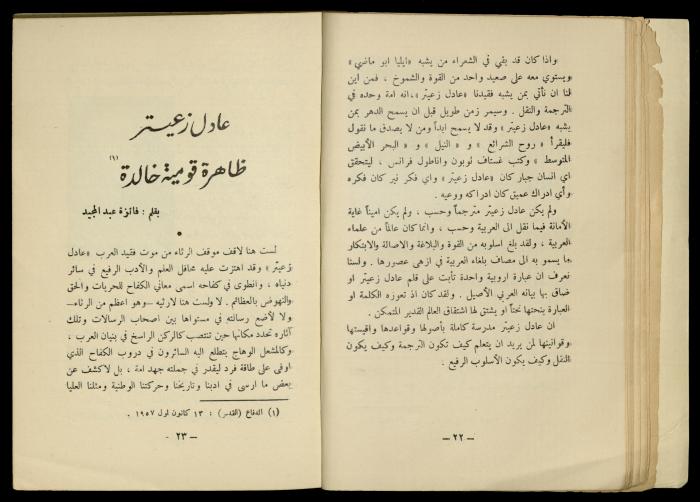 واذا كان قد بقي في الشعراء من يشبه «ايليا ابو ماضي»
ويستوي معه على صعيد واحد من القوة والشموخ ، فمن اين
لنا ان نأتي بمن يشبه فقيدنا «عادل زعيتر» ،انه امة وحده في
الترجمة والنقل . وسيمر زمن طويل قبل ان يسمح الدهر بمن
يشبه «عادل زعيتر» وقد لا يسمح ابداً ومن لا يصدق ما نقول
فليقرأ « روح الشرائع » و « النيل » و « البحر الأبيض
المتوسط » وكتب غستاف لوبون واناطول فرانس ، ليتحقق
اي انسان جبار كان «عادل زعيتر» واي فكر نير كان فكره
وأي ادراك عميق كان ادراكه ووعيه .
ولم يكن عادل زعيتر مترجماً وحسب ، ولم يكن اميناً غاية
الأمانة فيما نقل الى العربية وحسب ، وانما كان عالماً من علماء
العربية ، ولقد بلغ اسلوبه من القوة والبلاغة والاصالة والابتكار
ما يسمو به الى مصاف بلغاء العربية في ازهى عصورها . ولسنا
نعرف ان عبارة اوروبية واحدة تأبت على قلم عادل زعيتر او
ضاق بها بيانه العربي الأصيل . ولقد كان اذ تعوزه الكلمة او
العبارة ينحتها نحتاً او يشتق لها اشتقاق العالم القدير المتمكن .
ان عادل زعيتر مدرسة كاملة بأصولها وقواعدها واقيستها
وقوانينها لمن يريد ان يتعلم كيف تكون الترجمة وكيف يكون
النقل وكيف يكون الأسلوب الرفيع .
— ٢٢ —
عادل زعيتر
ظاهرة قومية خالدة (١)
بقلم : فائزة عبد المجيد
لست هنا لاقف موقف الرثاء من موت فقيد العرب «عادل
زعيتر» وقد اهتزت عليه محافل العلم والأدب الرفيع في سائر
دنياه ، وانطوى في كفاحه اسمى معاني الكفاح للحريات والحق
والنهوض بالعظائم . لا ولست هنا لارثيه —وهو اعظم من الرثاء—
ولا لأضع رسالته في مستواها بين اصحاب الرسالات وتلك
آثاره تحدد مكانها حين تنتصب كالركن الراسخ في بنيان العرب ،
وكالمشعل الوهاج يتطلع اليه السائرون في دروب الكفاح الذي
اوفى على طاقة فرد ليقدر في جملته جهد امة ، بل لاكشف عن
بعض ما ارسى في ادبنا وتاريخنا وحركتنا الوطنية ومثلنا العليا
(١) الدفاع (القدس) : ١٣ كانون اول ١٩٥٧ .
— ٢٣ —